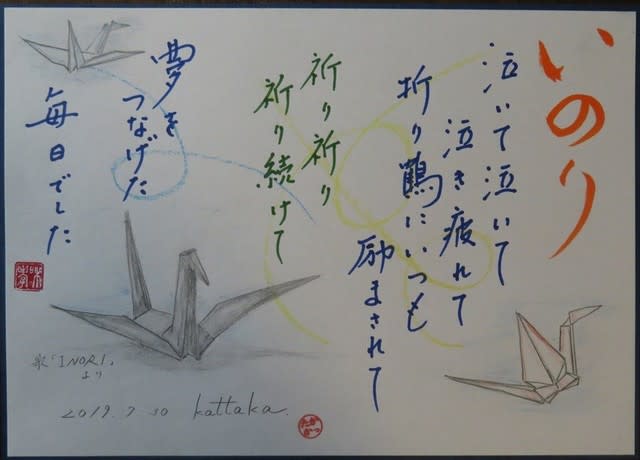 いのり
泣いて泣いて
泣き疲れて
折り鶴にいつも
励まされて
祈り祈り
祈り続けて
夢を
つなげた
毎日でした
歌「INORI」
より
2019.7.30 kattaka.